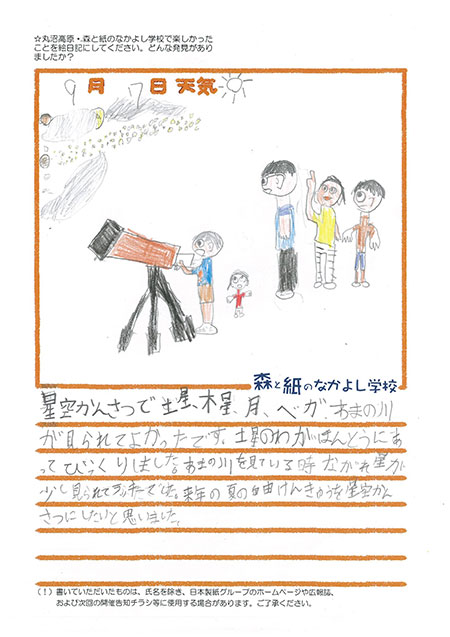 ☆丸沼高原・森と紙のなかよし学校で楽しかった
ことを絵日記にしてください。どんな発見があり
ましたか？
9月 7日 天気
森と紙のなかよし学校
星空かんさつで土星、木星、月、ベガ、あまの川
が見られてよかったです。土星のわがほんとうにあ
ってびっくりしました。あまの川を見ている時ながれ星が
少し見られて
来年の夏の自由けんきゅうを星空かん
さつにしたいと思いました。
（！）書いていただいたものは、氏名を除き、日本製紙グループのホームページや広報誌、
および次回の開催告知チラシ等に使用する場合があります。ご了承ください。